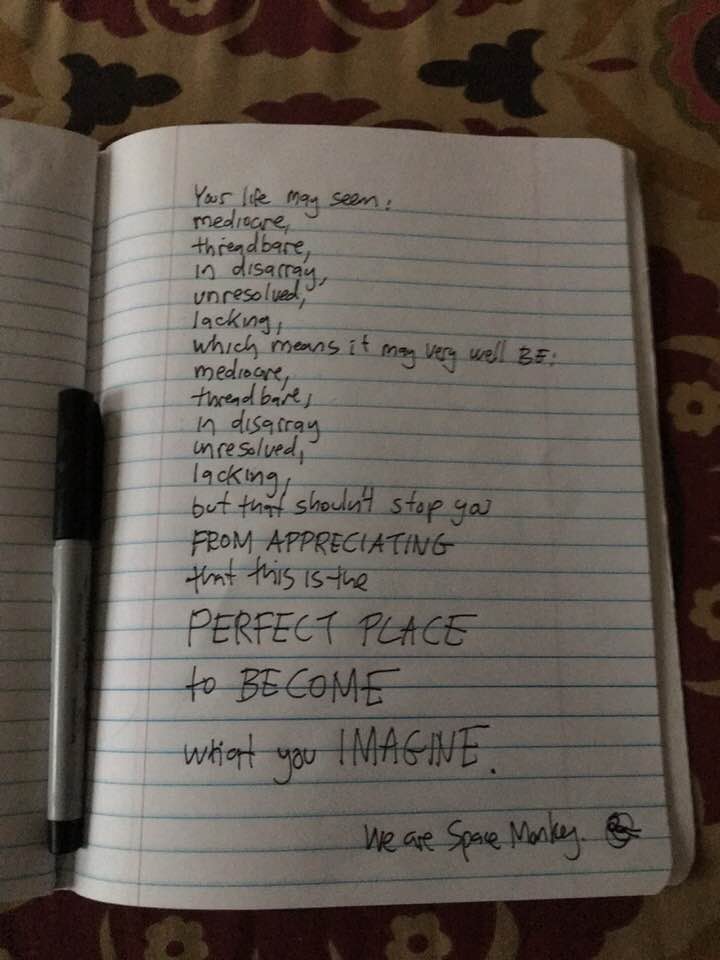 Your life may seem:
mediocre,
threadbare,
in disarray,
unresolved,
lacking,
which means it may very well BE:
mediocre,
threadbare,
in disarray
unresolved,
lacking,
but that shouldn't stop you
FROM APPRECIATING
that this is the
PERFECT PLACE
to BECOME
what you IMAGINE.
We are Space Monkey.